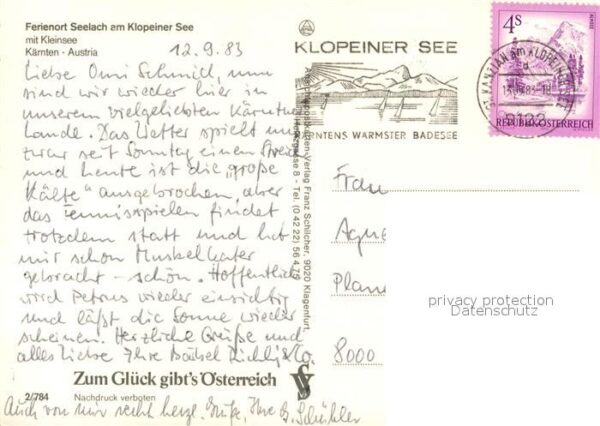 Ferienort Seelach am Klopeiner See
mit Kleinsee
Kärnten - Austria
12.9.83
Liebe Omi Schmid, nun
sind wir wieder hier in
unserem vielgeliebten Kärntner
Lande. Das Wetter spielt uns
zwar seit Sonntag einen Streich
und heute ist die "große
Kälte" ausgebrochen, aber
das Tennisspielen findet
trotzdem statt und hat
mir schon Muskelkater
gebracht - schön. Hoffentlich
wird Petrus wieder einsichtig
und läßt die Sonne wieder
scheinen. Herzliche Grüße und
alles Liebe Ihre Bärbel
Zum Glück gibt's Österreich
2/784
Nachdruck verboten
Auch von mir recht herzl. Grüße, Ihre
Verlag Franz Schilcher, 9020 Klagenfurt,
8 - Tel. (0 42 22) 56 4 75
KLOPEINER SEE
KÄRNTENS WÄRMSTER BADESEE
4S
REPUBLIK ÖSTERREICH
ST. KANZIAN AM KLOPEINER SEE
9122
Frau
Agne
Plan
8000
privacy protection
Datenschutz